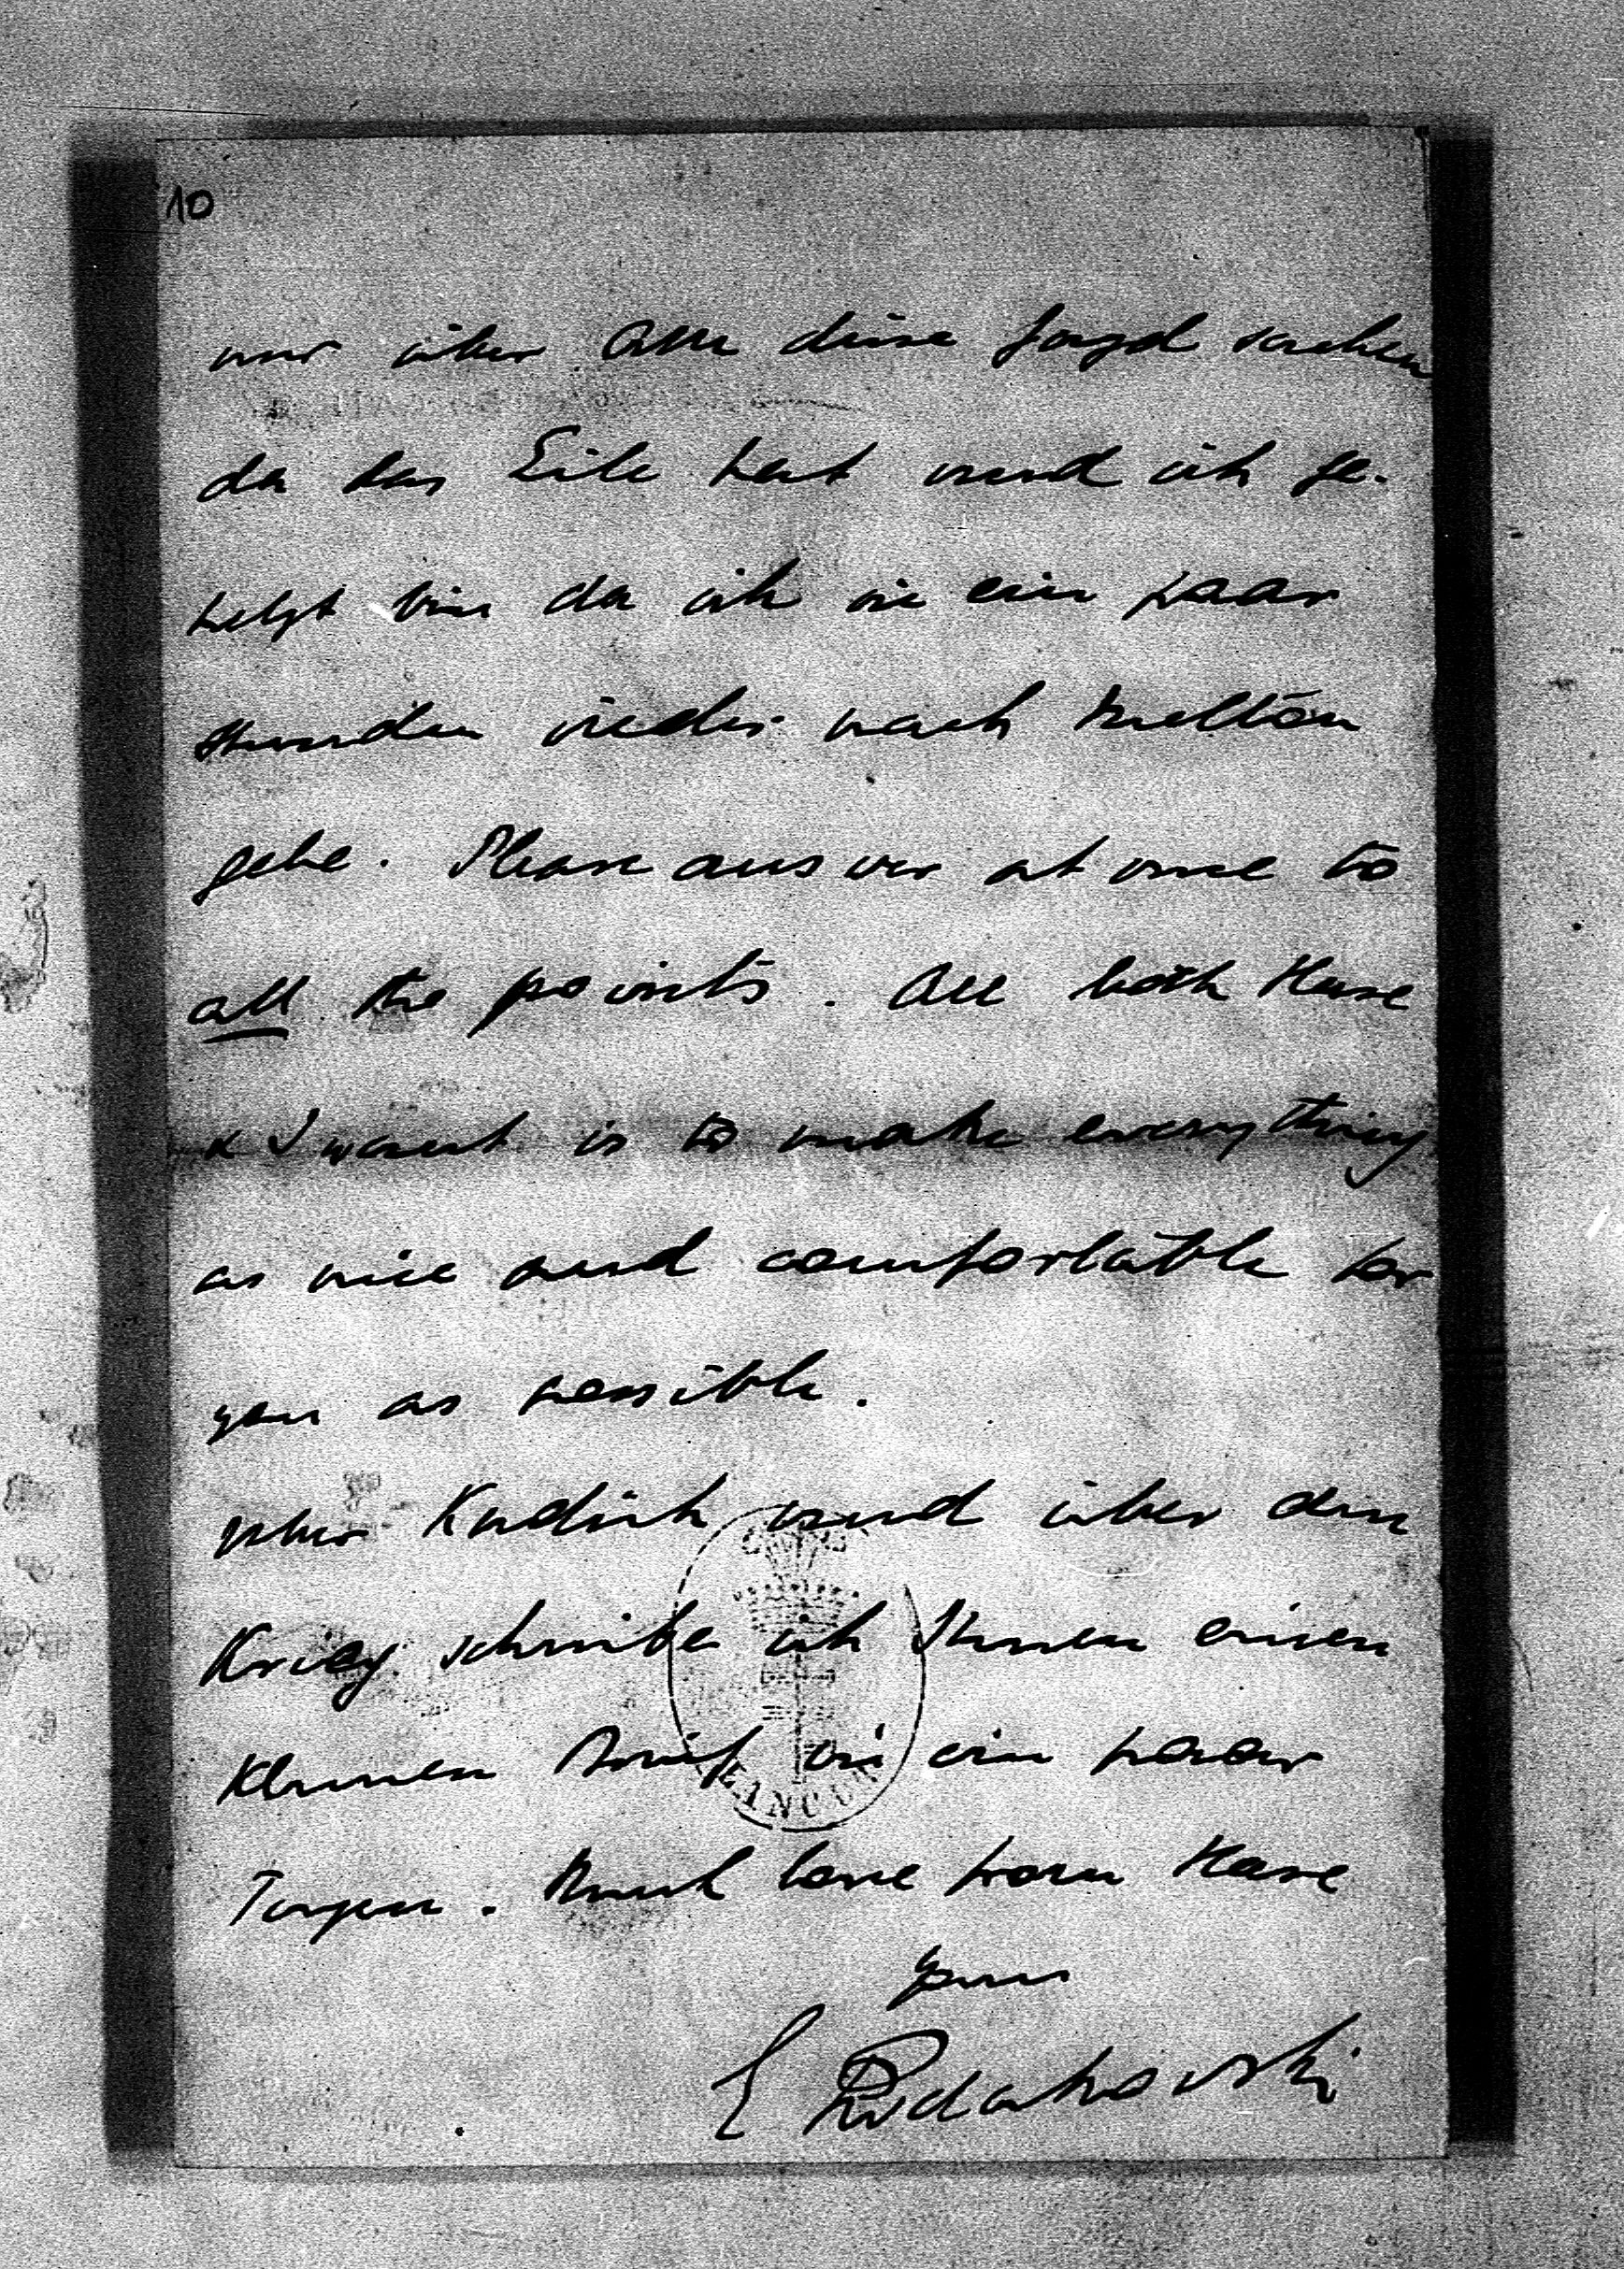 10
nur über alle diese Jagd sachen
da das Eile hat und ich ge-
hetzt bin da ich in ein paar
stunden wieder nach Melton
gehe. Please answer at once to
all the points. All both Hase
& I want is to make everything
as nice and comfortable for
you as possible.
Über und über den
Krieg schreibe ich Ihnen einen
kleinen Brief in ein paar
Tagen. Much love from Hase
yours
E Rudakowski